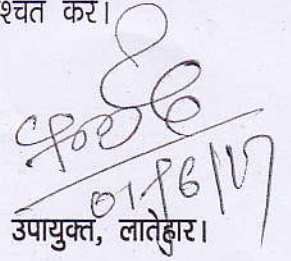 श्चत करें।
01/6/17
उपायुक्त, लातेहार।